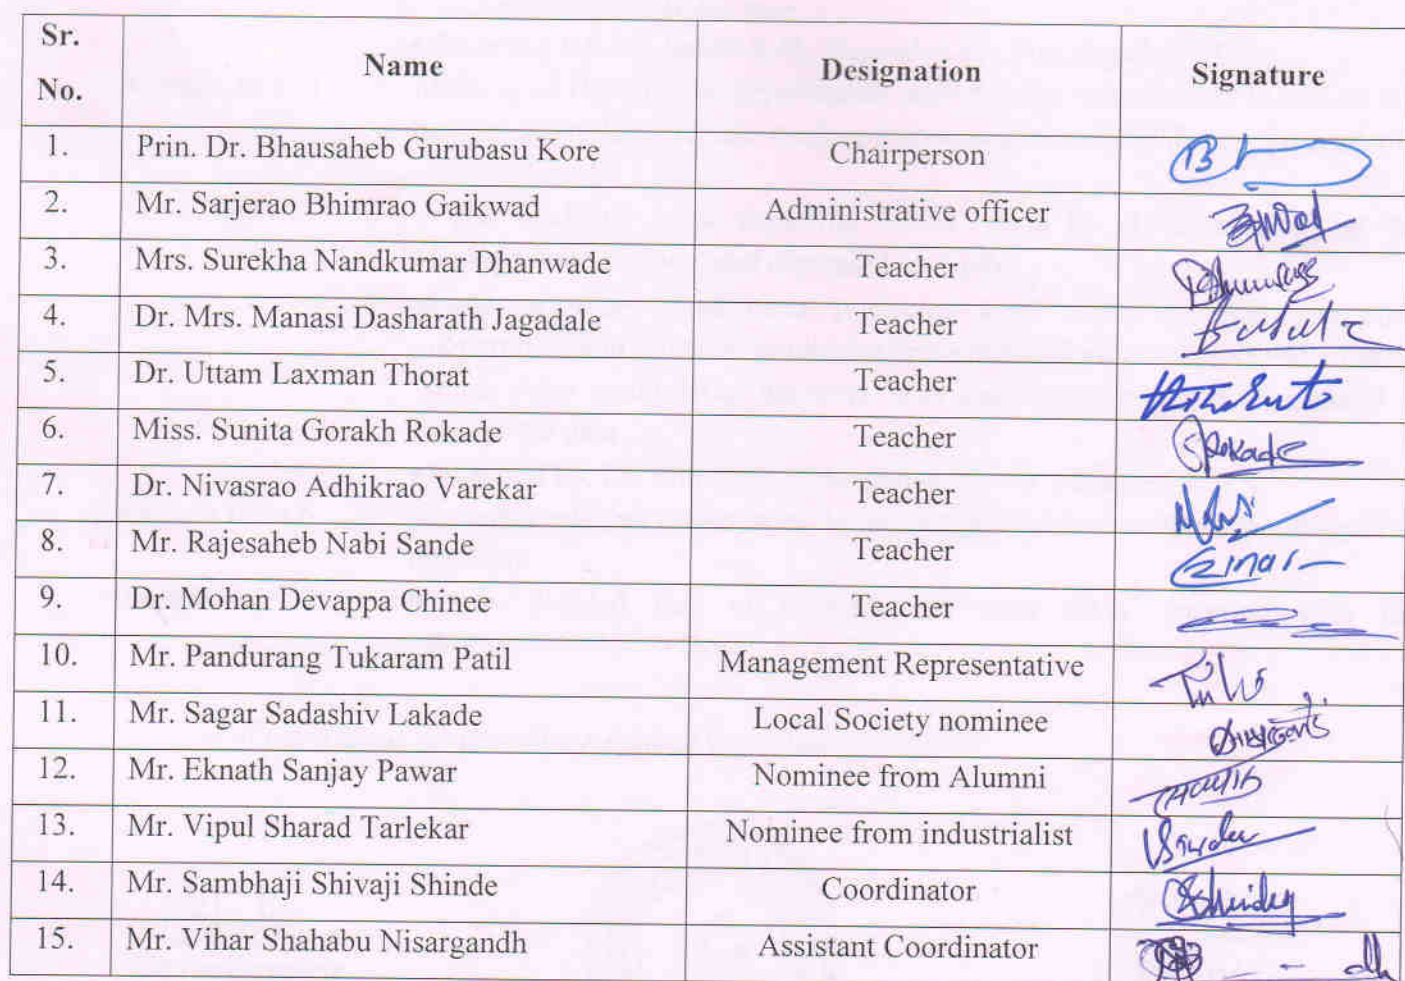 Sr. No. Name Designation Signature
1. Prin. Dr. Bhausaheb Gurubasu Kore Chairperson
2. Mr. Sarjerao Bhimrao Gaikwad Administrative officer
3. Mrs. Surekha Nandkumar Dhanwade Teacher
4. Dr. Mrs. Manasi Dasharath Jagadale Teacher
5. Dr. Uttam Laxman Thorat Teacher
6. Miss. Sunita Gorakh Rokade Teacher
7. Dr. Nivasrao Adhikrao Varekar Teacher
8. Mr. Rajesaheb Nabi Sande Teacher
9. Dr. Mohan Devappa Chinee Teacher
10. Mr. Pandurang Tukaram Patil Management Representative
11. Mr. Sagar Sadashiv Lakade Local Society nominee
12. Mr. Eknath Sanjay Pawar Nominee from Alumni
13. Mr. Vipul Sharad Tarlekar Nominee from industrialist
14. Mr. Sambhaji Shivaji Shinde Coordinator
15. Mr. Vihar Shahabu Nisargandh Assistant Coordinator